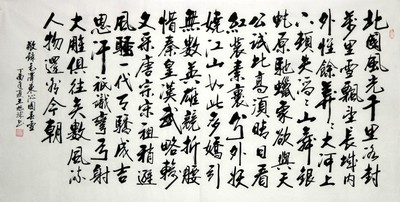 北國風光千里冰封
萬里雪飄望長城內
外惟餘莽莽大河上
下頓失滔滔山舞銀
蛇原馳蠟象欲與天
公試比高須晴日看
紅裝素裹分外妖
嬈江山如此多嬌引
無數英雄競折腰
惜秦皇漢武略輸
文采唐宗宋祖稍遜
風騷一代天驕成吉
思汗祇識彎弓射
大雕俱往矣數風流
人物還看今朝
敬錄毛澤東沁園春雪